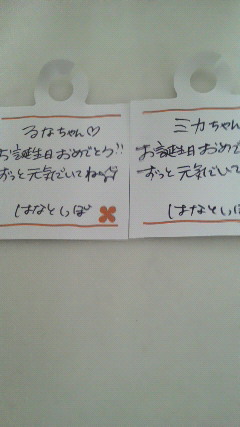 るなちゃん♡
お誕生日おめでとう!!
ずっと元気でいてね
はなとしっぽ
ミカちゃん
お誕生日おめで
ずっと元気でいて
はなとしっぽ